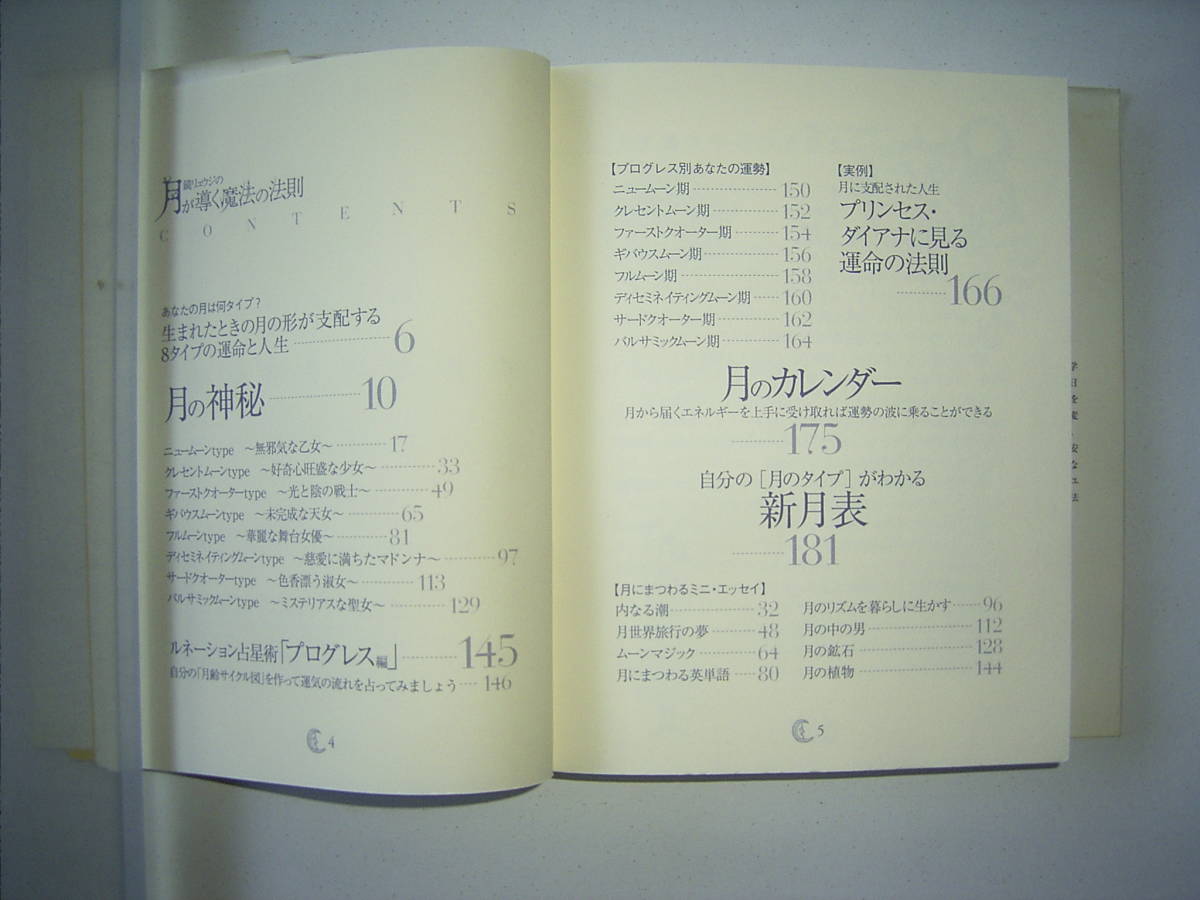 鏡リュウジの
月が導く魔法の法則
CONTENTS
あなたの月は何タイプ?
生まれたときの月の形が支配する
8タイプの運命と人生 6
月の神秘 10
ニュームーンtype ~無邪気な乙女~ 17
クレセントムーンtype ~好奇心旺盛な少女~ 33
ファーストクオーターtype ~光と陰の戦士~ 49
ギバウスムーンtype ~未完成な天女~ 65
フルムーンtype ~華麗な舞台女優~ 81
ディセミネイティングムーンtype ~慈愛に満ちたマドンナ~ 97
サードクオーターtype ~色香漂う淑女~ 113
バルサミックムーンtype ~ミステリアスな聖女~ 129
ルネーション占星術「プログレス編」 145
自分の「月齢サイクル図」を作って運気の流れを占ってみましょう 146
4
【プログレス別あなたの運勢】
ニュームーン期 150
クレセントムーン期 152
ファーストクオーター期 154
ギバウスムーン期 156
フルムーン期 158
ディセミネイティングムーン期 160
サードクオーター期 162
バルサミックムーン期 164
【実例】
月に支配された人生
プリンセス・
ダイアナに見る
運命の法則
166
月のカレンダー
月から届くエネルギーを上手に受け取れば運勢の波に乗ることができる
175
自分の[月のタイプ]がわかる
新月表
181
【月にまつわるミニ・エッセイ】
内なる潮 32
月世界旅行の夢 48
ムーンマジック 64
月にまつわる英単語 80
月のリズムを暮らしに生かす 96
月の中の男 112
月の鉱石 128
月の植物 144
5